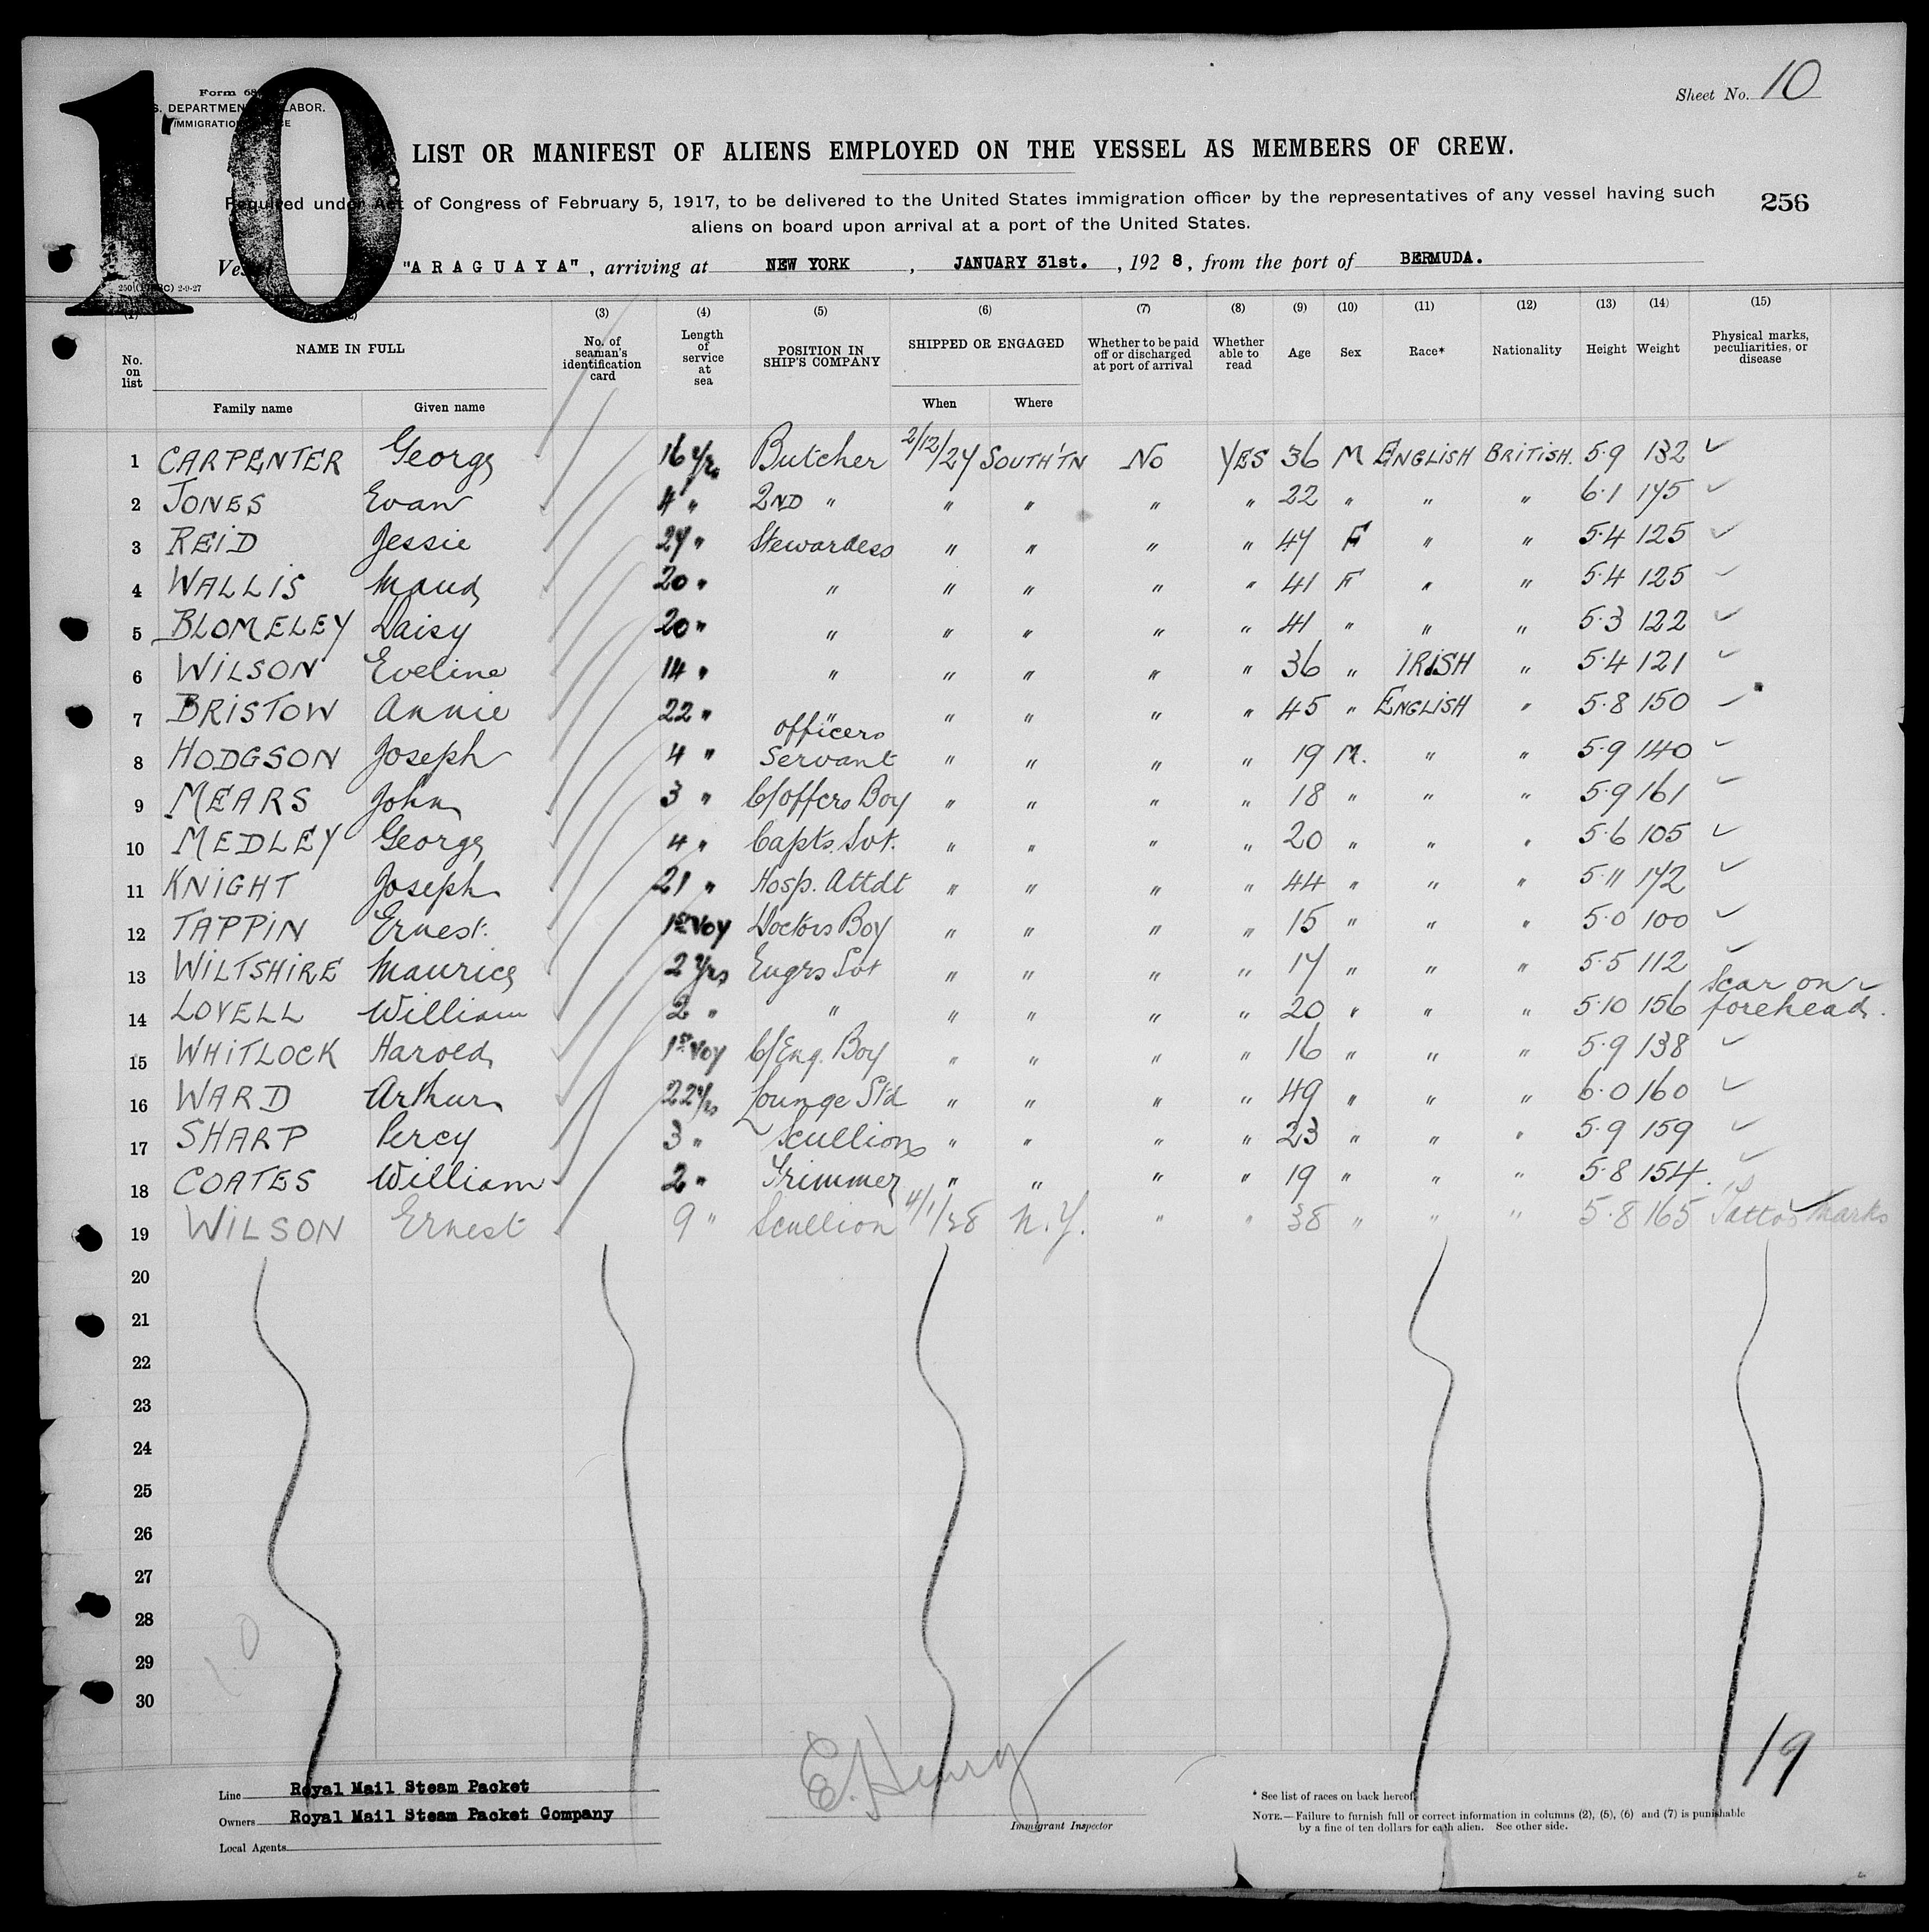 10
Form 68
S. DEPARTMENT LABOR.
IMMIGRATION
Sheet No. 10
LIST OR MANIFEST OF ALIENS EMPLOYED ON THE VESSEL AS MEMBERS OF CREW.
Required under Act of Congress of February 5, 1917, to be delivered to the United States immigration officer by the representatives of any vessel having such
aliens on board upon arrival at a port of the United States.
256
"ARAGUAYA", arriving at NEW YORK, JANUARY 31st., 1928, from the port of BERMUDA.
2-9-27
(3) (4) (5) (6) (7) (8) (9) (10) (11) (12) (13) (14) (15)
No. on list NAME IN FULL No. of seaman's identification card Length of service at sea POSITION IN SHIP'S COMPANY SHIPPED OR ENGAGED Whether to be paid off or discharged at port of arrival Whether able to read Age Sex Race* Nationality Height Weight Physical marks, peculiarities, or disease
Family name Given name When Where
1 CARPENTER George 16 Yrs Butcher 2/12/27 SOUTH'TN No YES 36 M ENGLISH BRITISH. 5·9 132 ✓
2 JONES Evan 4 " 2ND " " " " " 22 " " " 6·1 175 ✓
3 REID Jessie 27 " Stewardess " " " " 47 F " " 5·4 125 ✓
4 WALLIS Maud 20 " " " " " " 41 F " " 5·4 125 ✓
5 BLOMELEY Daisy 20 " " " " " " 41 " " " 5·3 122 ✓
6 WILSON Eveline 14 " " " " " " 36 " IRISH " 5·4 121 ✓
7 BRISTOW Annie 22 " " " " " " 45 " ENGLISH " 5·8 150 ✓
8 HODGSON Joseph 4 " officers Servant " " " " 19 M. " " 5·9 140 ✓
9 MEARS John 3 " C/offcrs Boy " " " " 18 " " " 5·9 161 ✓
10 MEDLEY George 4 " Capts. Svt. " " " " 20 " " " 5·6 105 ✓
11 KNIGHT Joseph 21 " Hosp. Attdt " " " " 44 " " " 5·11 172 ✓
12 TAPPIN Ernest. 1st Voy Doctors Boy " " " " 15 " " " 5·0 100 ✓
13 WILTSHIRE Maurice 2 Yrs Engrs Svt " " " " 17 " " " 5·5 112 ✓
14 LOVELL William 2 " " " " " " 20 " " " 5·10 156 Scar on forehead. ✓
15 WHITLOCK Harold 1st Voy C/Eng. Boy " " " " 16 " " " 5·9 138 ✓
16 WARD Arthur 22 Yrs Lounge Std " " " " 49 " " " 6·0 160 ✓
17 SHARP Percy 3 " Scullion " " " " 23 " " " 5·9 159 ✓
18 COATES William 2 " Trimmer " " " " 19 " " " 5·8 154. ✓
19 WILSON Ernest 9 " Scullion 4/1/28 N.Y. " " 38 " " " 5·8 165 Tattoo Marks
20
21
22
23
24
25
26
27
28
29
30
19
Line Royal Mail Steam Packet
Owners Royal Mail Steam Packet Company
Local Agents
E. Henry
Immigrant Inspector
* See list of races on back hereof.
NOTE.—Failure to furnish full or correct information in columns (2), (5), (6) and (7) is punishable
by a fine of ten dollars for each alien. See other side.